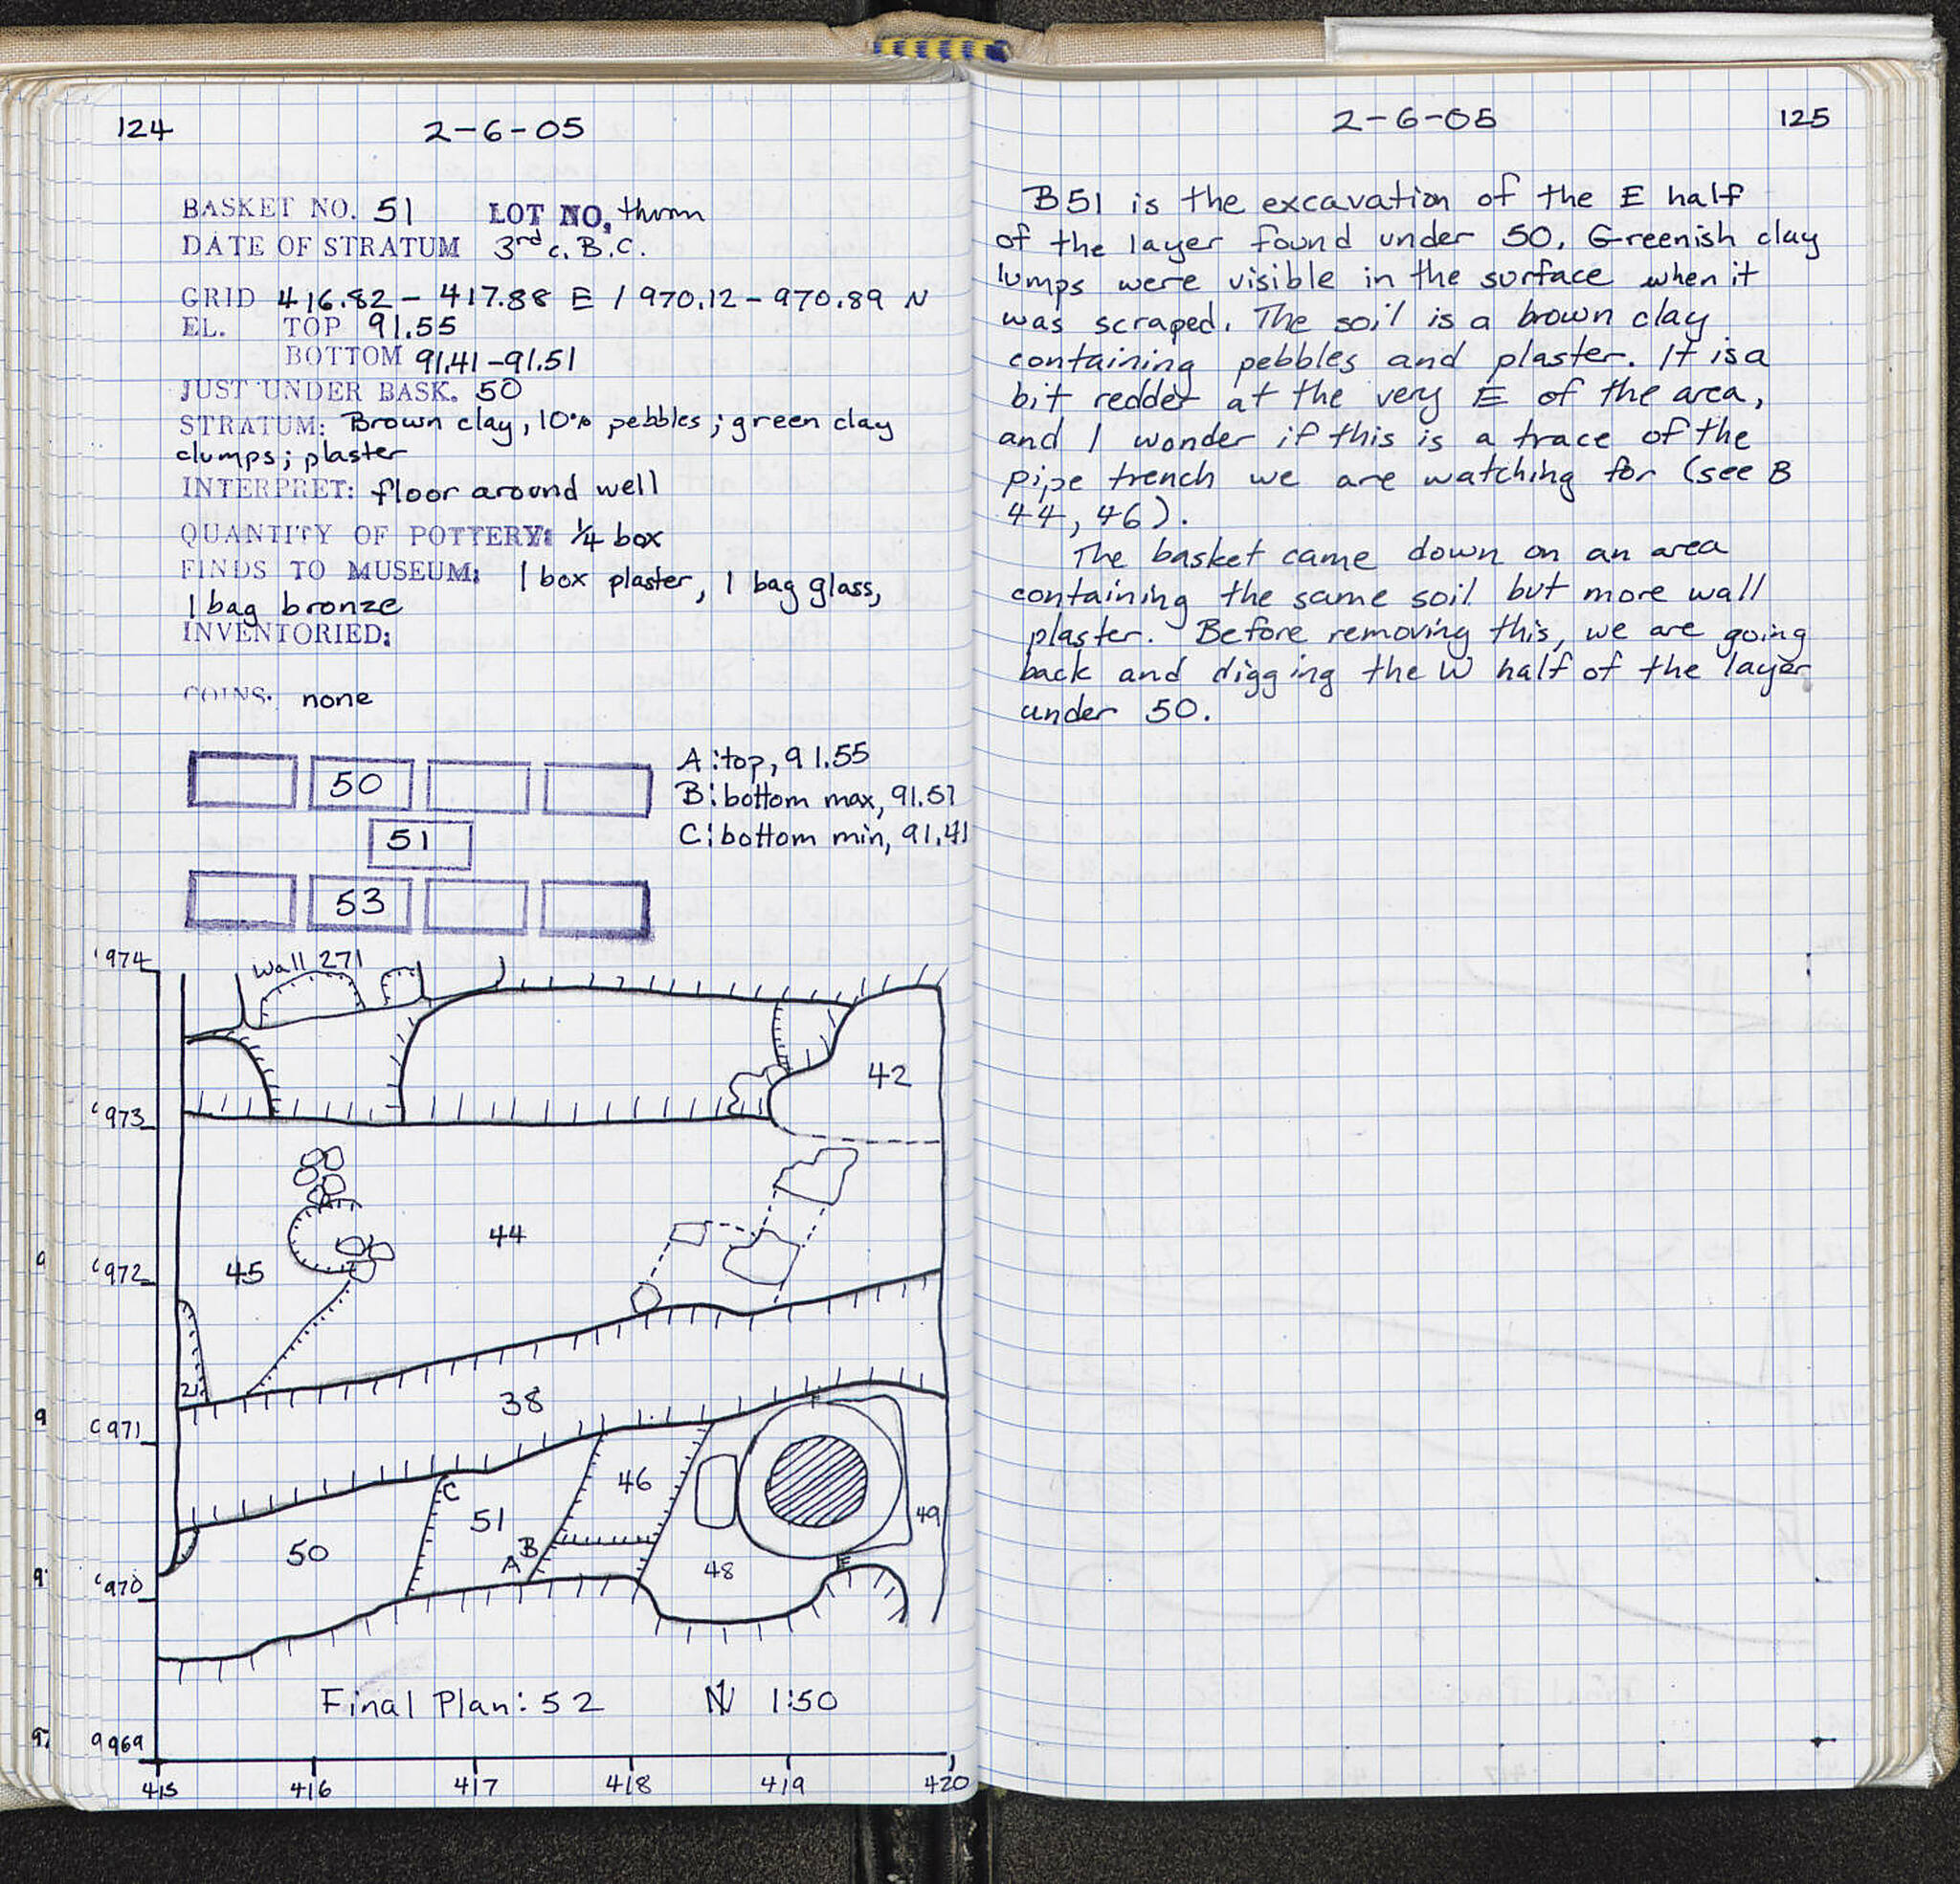 124
2-6-05
BASKET NO. 51 LOT NO. throm
DATE OF STRATUM 3rd c. B.C.
GRID 416.82 - 417.88 E / 970.12 - 970.89 N
EL. TOP 91.55
BOTTOM 91.41-91.51
JUST UNDER BASK. 50
STRATUM: Brown clay, 10% pebbles; green clay
clumps; plaster
INTERPRET: floor around well
QUANTITY OF POTTERY: ¼ box
FINDS TO MUSEUM: 1 box plaster, 1 bag glass,
1 bag bronze
INVENTORIED:
COINS: none
50
51
53
A: top, 91.55
B: bottom max, 91.51
C: bottom min, 91.41
974
Wall 271
42
973
44
45
972
38
971
C
46
51
49
50
B
A
48
970
Final Plan: 52 N 1:50
969
415 416 417 418 419 420
2-6-05
125
B51 is the excavation of the E half
of the layer found under 50. Greenish clay
lumps were visible in the surface when it
was scraped. The soil is a brown clay
containing pebbles and plaster. It is a
bit redder at the very E of the area,
and I wonder if this is a trace of the
pipe trench we are watching for (see B
44, 46).
The basket came down on an area
containing the same soil but more wall
plaster. Before removing this, we are going
back and digging the W half of the layer
under 50.